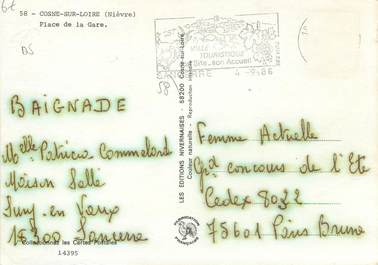 58 - COSNE-SUR-LOIRE (Nièvre)
Place de la Gare.
BAIGNADE
Melle Patricia Commeland
Maison Sallé
Sury en Vaux
18300 Sancerre
Collectionnez les Cartes Postales
14395
VILLE
TOURISTIQUE
Site..son Accueil
4 -9-86
LES ÉDITIONS NIVERNAISES - 58200 Cosne-sur-Loire
Couleur naturelle - Reproduction interdite
Femme Actuelle
Gd concours de l'Eté
Cedex 8032
75601 Paris Brune